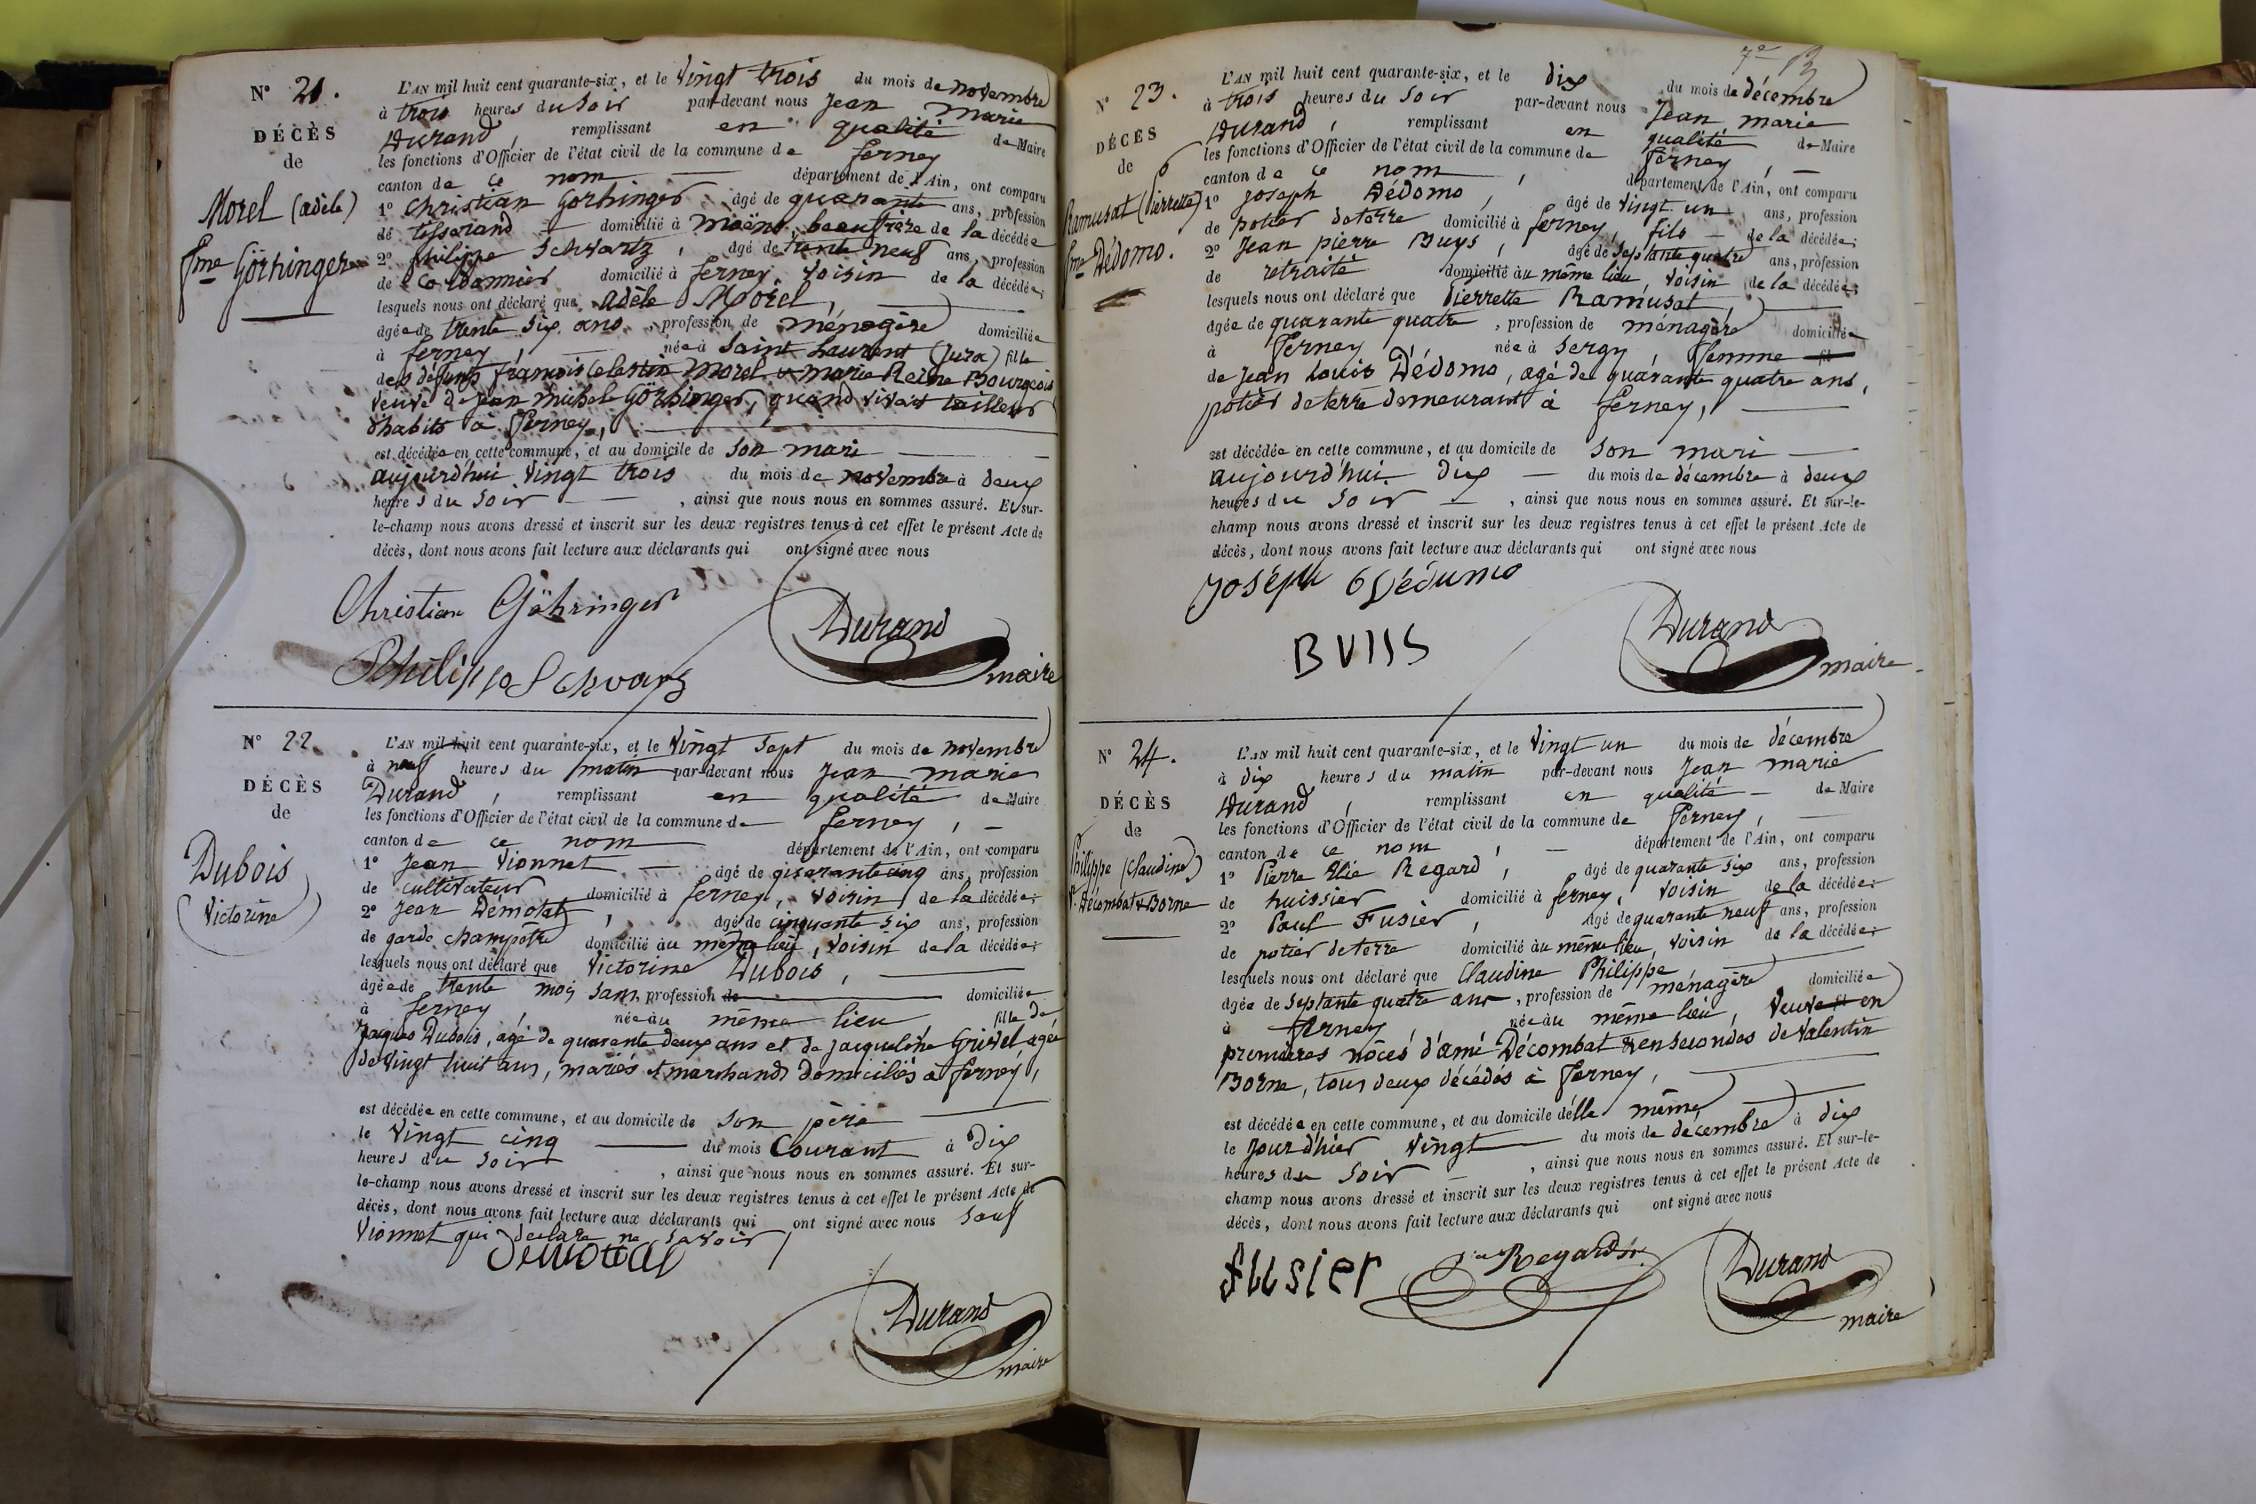 N° 21.
DÉCÈS
de
Morel (adèle)
fme Görhinger
L'AN mil huit cent quarante-six, et le Vingt trois du mois de novembre
à trois heures du soir par-devant nous Jean marie
Durand, remplissant en qualité de Maire
les fonctions d'Officier de l'état civil de la commune de ferney
canton de ce nom département de l'Ain, ont comparu
1° Christian Görhinger âgé de quarante ans, profession
de tisserand domicilié à beaufrère de la décédée
2° philippe Schvartz, âgé de trente neuf ans, profession
de Cordonnier domicilié à ferney, Voisin de la décédée;
lesquels nous ont déclaré que adèle Morel,
âgée de trente six ans, profession de ménagère domiciliée
à ferney née à Saint Laurent (Jura) fille
des défunts françois Celestin Morel & marie Reine Bourgeois
veuve de jean michel Görhinger, quand vivait tailleur
d'habits à ferney,
est décédée en cette commune, et au domicile de son mari
aujourd'hui vingt trois du mois de novembre à deux
heures du soir, ainsi que nous nous en sommes assuré. Et sur-
le-champ nous avons dressé et inscrit sur les deux registres tenus à cet effet le présent Acte de
décès, dont nous avons fait lecture aux déclarants qui ont signé avec nous
Christian Göhringer
Durand
maire
Philippe Schvarz
N° 22.
DÉCÈS
de
Dubois
(Victorine)
L'AN mil huit cent quarante-six, et le Vingt sept du mois de novembre
à neuf heures du matin par-devant nous Jean marie
Durand, remplissant en qualité de Maire
les fonctions d'Officier de l'état civil de la commune de ferney,
canton de ce nom département de l'Ain, ont comparu
1° Jean Vionnet âgé de quarante cinq ans, profession
de cultivateur domicilié à ferney, Voisin de la décédée;
2° Jean Démotat, âgé de cinquante six ans, profession
de garde champêtre domicilié au même lieu, Voisin de la décédée;
lesquels nous ont déclaré que Victorine Dubois,
âgée de trente mois sans profession de domiciliée
à ferney, née au même lieu fille de
Jaques Dubois, agé de quarante deux ans et de jacqueline Grivel agée
de Vingt huit ans, mariés et marchands domiciliés à ferney,
est décédée en cette commune, et au domicile de son père
le Vingt cinq du mois Courant à Dix
heures du soir, ainsi que nous nous en sommes assuré. Et sur-
le-champ nous avons dressé et inscrit sur les deux registres tenus à cet effet le présent Acte de
décès, dont nous avons fait lecture aux déclarants qui ont signé avec nous sauf
Vionnet qui déclare ne savoir
Demottaz
Durand
maire
N° 23.
DÉCÈS
de
Ramusat (Pierrette)
fme Dédomo.
L'AN mil huit cent quarante-six, et le dix du mois de décembre
à trois heures du soir par-devant nous Jean marie
Durand, remplissant en qualité de Maire
les fonctions d'Officier de l'état civil de la commune de ferney,
canton de ce nom, département de l'Ain, ont comparu
1° Joseph Dédomo, âgé de Vingt un ans, profession
de potier de terre domicilié à ferney, fils de la décédée;
2° Jean pierre Buys, âgé de septante quatre ans, profession
de retraité domicilié au même lieu, Voisin de la décédée;
lesquels nous ont déclaré que Pierrette Ramusat,
âgée de quarante quatre, profession de ménagère domiciliée
à Ferney née à Sergy femme
de Jean Louis Dédomo, agé de quarante quatre ans,
potier de terre demeurant à ferney,
est décédée en cette commune, et au domicile de son mari
aujourd'hui dix du mois de décembre à deux
heures du soir, ainsi que nous nous en sommes assuré. Et sur-le-
champ nous avons dressé et inscrit sur les deux registres tenus à cet effet le présent Acte de
décès, dont nous avons fait lecture aux déclarants qui ont signé avec nous
Joséph Dédumo
Durand
maire
BUIS
N° 24.
DÉCÈS
de
Philippe (Claudine)
Ve Décombat & Borne
L'AN mil huit cent quarante-six, et le Vingt un du mois de décembre
à dix heures du matin par-devant nous Jean marie
Durand, remplissant en qualité de Maire
les fonctions d'Officier de l'état civil de la commune de Ferney,
canton de ce nom, département de l'Ain, ont comparu
1° Pierre Elie Regard, âgé de quarante six ans, profession
de huissier domicilié à ferney, Voisin de la décédée;
2° Paul Fusier, âgé de quarante neuf ans, profession
de potier de terre domicilié au même lieu, Voisin de la décédée;
lesquels nous ont déclaré que Claudine Philippe
âgée de septante quatre ans, profession de ménagère domiciliée
à ferney née au même lieu, Veuve en
premières nôces d'amé Décombat & en secondes de Valentin
Borne, tous deux décédés à Ferney,
est décédée en cette commune, et au domicile d'elle même
le jour d'hier vingt du mois de décembre à dix
heures du soir, ainsi que nous nous en sommes assuré. Et sur-le-
champ nous avons dressé et inscrit sur les deux registres tenus à cet effet le présent Acte de
décès, dont nous avons fait lecture aux déclarants qui ont signé avec nous
fusier Regard Durand
maire